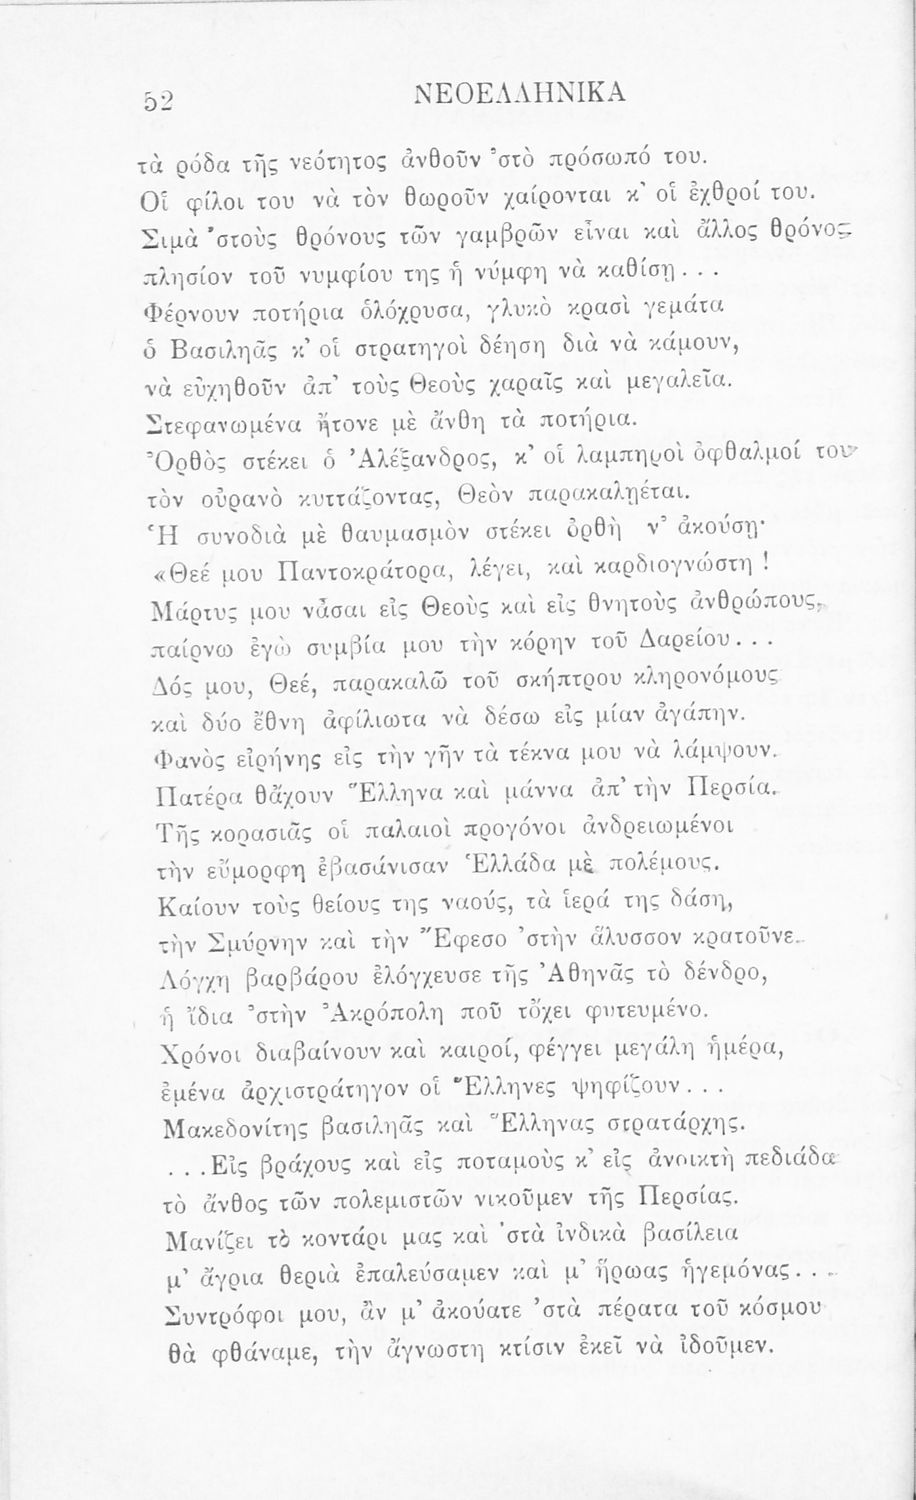 52 ΝΕΟΕΛΛΗΝΙΚΑ
τὰ ρόδα τῆς νεότητος ἀνθοῦν ’στὸ πρόσωπό του.
Οἱ φίλοι του νὰ τὸν θωροῦν χαίρονται κ’ οἱ ἐχθροί του.
Σιμὰ ’στοὺς θρόνους τῶν γαμβρῶν εἶναι καὶ ἄλλος θρόνος
πλησίον τοῦ νυμφίου της ἡ νύμφη νὰ καθίσῃ...
Φέρνουν ποτήρια ὁλόχρυσα, γλυκὸ κρασὶ γεμάτα
ὁ Βασιληᾶς κ’ οἱ στρατηγοὶ δέηση διὰ νὰ κάμουν,
νὰ εὐχηθοῦν ἀπ’ τοὺς Θεοὺς χαραῖς καὶ μεγαλεῖα.
Στεφανωμένα ἤτονε μὲ ἄνθη τὰ ποτήρια.
Ὀρθὸς στέκει ὁ Ἀλέξανδρος, κ’ οἱ λαμπηροὶ ὀφθαλμοί του
τὸν οὐρανὸ κυττάζοντας, Θεὸν παρακαληέται.
Ἡ συνοδιὰ μὲ θαυμασμὸν στέκει ὀρθὴ ν’ ἀκούσῃ·
«Θεέ μου Παντοκράτορα, λέγει, καὶ καρδιογνώστη !
Μάρτυς μου νἆσαι εἰς Θεοὺς καὶ εἰς θνητοὺς ἀνθρώπους,
παίρνω ἐγὼ συμβία μου τὴν κόρην τοῦ Δαρείου...
Δός μου, Θεέ, παρακαλῶ τοῦ σκήπτρου κληρονόμους
καὶ δύο ἔθνη ἀφίλιωτα νὰ δέσω εἰς μίαν ἀγάπην.
Φανὸς εἰρήνης εἰς τὴν γῆν τὰ τέκνα μου νὰ λάμψουν.
Πατέρα θἄχουν Ἕλληνα καὶ μάννα ἀπ’ τὴν Περσία.
Τῆς κορασιᾶς οἱ παλαιοὶ προγόνοι ἀνδρειωμένοι
τὴν εὔμορφη ἐβασάνισαν Ἑλλάδα μὲ πολέμους.
Καίουν τοὺς θείους της ναούς, τὰ ἱερά της δάση,
τὴν Σμύρνην καὶ τὴν Ἔφεσο ’στὴν ἅλυσσον κρατοῦνε.
Λόγχη βαρβάρου ἐλόγχευσε τῆς Ἀθηνᾶς τὸ δένδρο,
ἡ ἴδια ’στὴν Ἀκρόπολη ποῦ τὄχει φυτευμένο.
Χρόνοι διαβαίνουν καὶ καιροί, φέγγει μεγάλη ἡμέρα,
ἐμένα ἀρχιστράτηγον οἱ Ἕλληνες ψηφίζουν...
Μακεδονίτης βασιληᾶς καὶ Ἕλληνας στρατάρχης.
...Εἰς βράχους καὶ εἰς ποταμοὺς κ’ εἰς ἀνοικτὴ πεδιάδα
τὸ ἄνθος τῶν πολεμιστῶν νικοῦμεν τῆς Περσίας.
Μανίζει τὸ κοντάρι μας καὶ ’στὰ ἰνδικὰ βασίλεια
μ’ ἄγρια θεριὰ ἐπαλεύσαμεν καὶ μ’ ἥρωας ἡγεμόνας...
Συντρόφοι μου, ἂν μ’ ἀκούατε ’στὰ πέρατα τοῦ κόσμου
θὰ φθάναμε, τὴν ἄγνωστη κτίσιν ἐκεῖ νὰ ἰδοῦμεν.